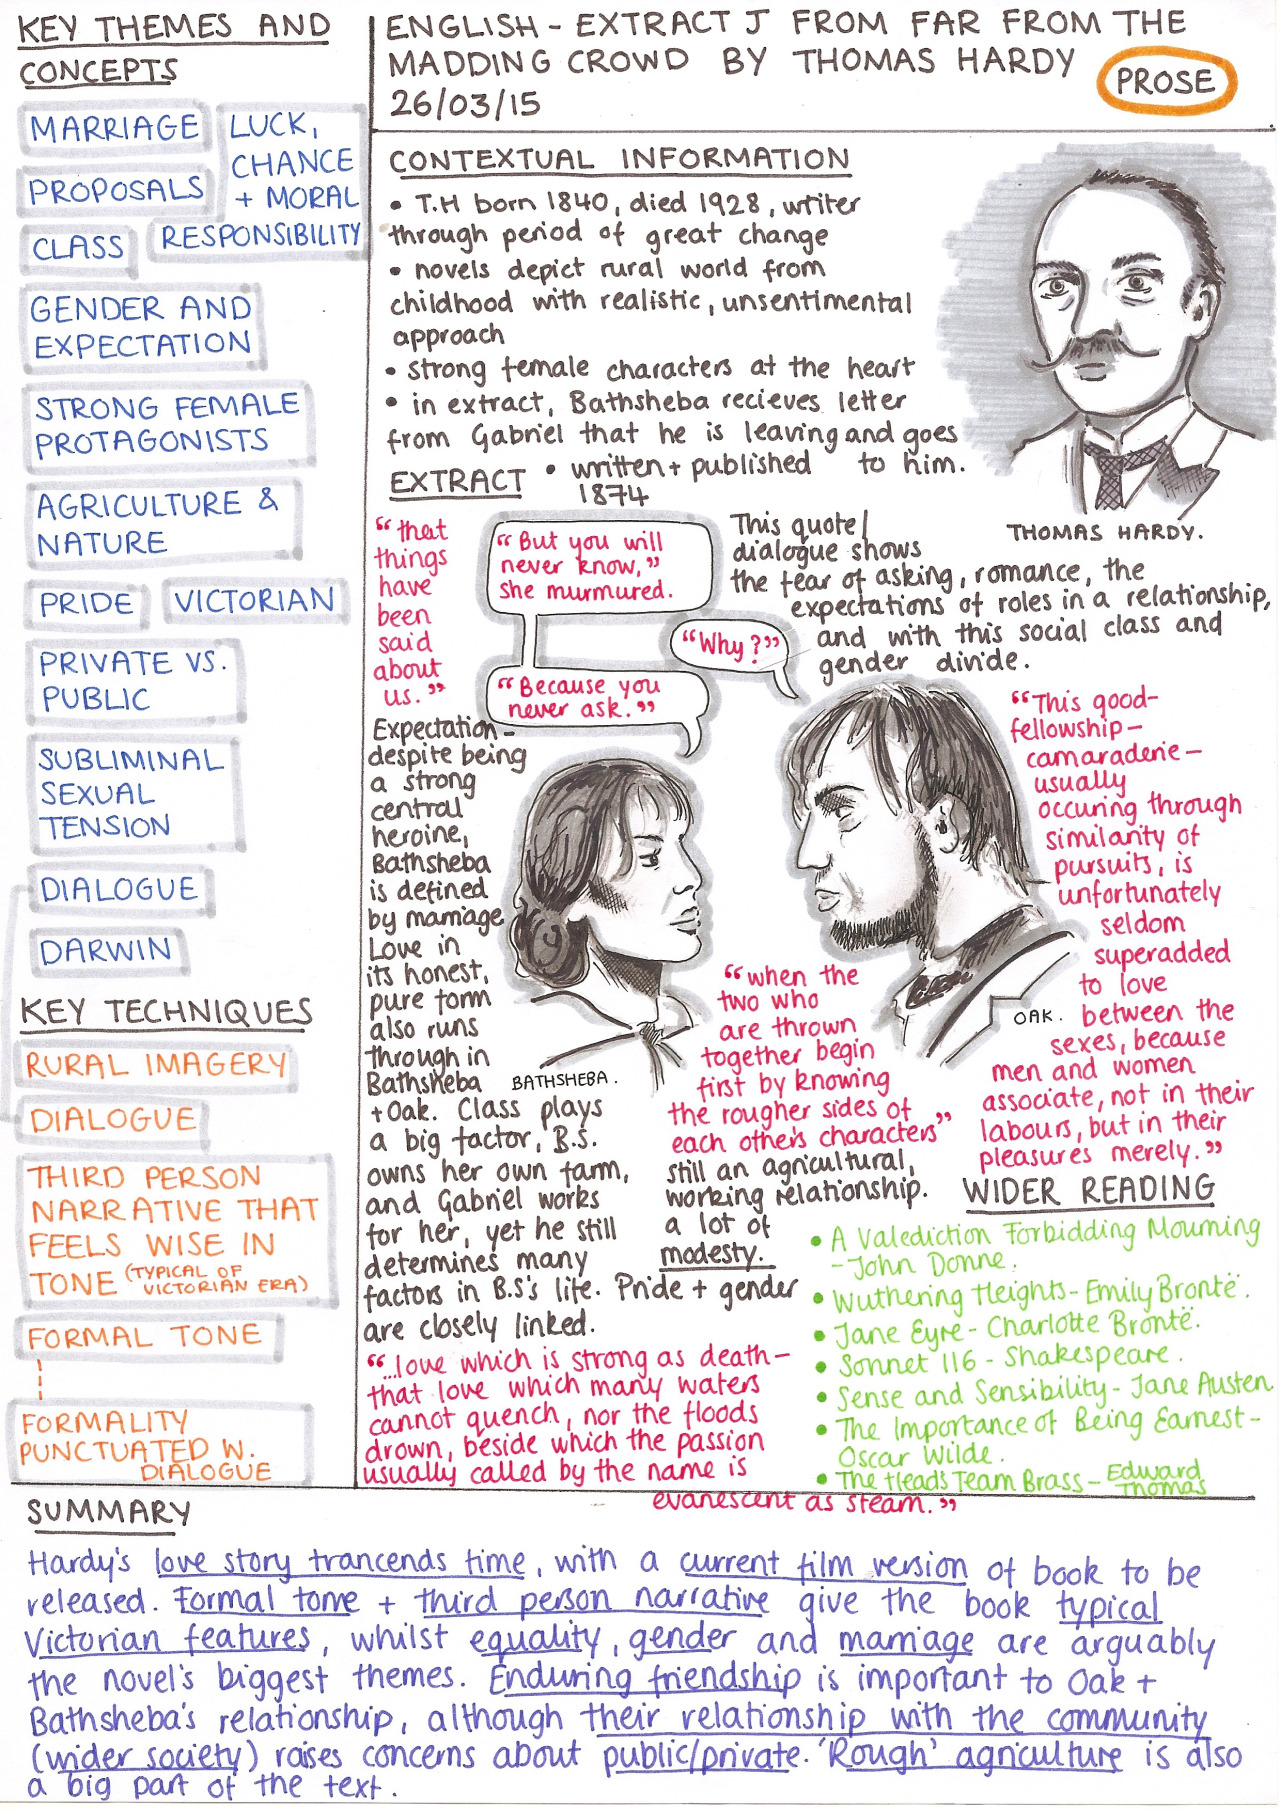 KEY THEMES AND
CONCEPTS
MARRIAGE
PROPOSALS
LUCK,
CHANCE
+ MORAL
RESPONSIBILITY
CLASS
GENDER AND
EXPECTATION
STRONG FEMALE
PROTAGONISTS
AGRICULTURE &
NATURE
PRIDE
VICTORIAN
PRIVATE VS.
PUBLIC
SUBLIMINAL
SEXUAL
TENSION
DIALOGUE
DARWIN
KEY TECHNIQUES
RURAL IMAGERY
DIALOGUE
THIRD PERSON
NARRATIVE THAT
FEELS WISE IN
TONE (TYPICAL OF
VICTORIAN ERA)
FORMAL TONE
FORMALITY
PUNCTUATED W.
DIALOGUE
ENGLISH - EXTRACT J FROM FAR FROM THE
MADDING CROWD BY THOMAS HARDY
26/03/15
PROSE
CONTEXTUAL INFORMATION
• T.H born 1840, died 1928, writer
through period of great change
• novels depict rural world from
childhood with realistic, unsentimental
approach
• strong female characters at the heart
• in extract, Bathsheba recieves letter
from Gabriel that he is leaving and goes
to him.
• written + published
1874
THOMAS HARDY.
EXTRACT
"that
things
have
been
said
about
us."
"But you will
never know,"
she murmured.
"Why?"
"Because you
never ask."
This quote/
dialogue shows
the fear of asking, romance, the
expectations of roles in a relationship,
and with this social class and
gender divide.
Expectation -
despite being
a strong
central
heroine,
Bathsheba
is defined
by marriage
Love in
its honest,
pure form
also runs
through in
Bathsheba
+ Oak. Class plays
a big factor, B.S.
owns her own farm,
and Gabriel works
for her, yet he still
determines many
factors in B.S's life. Pride + gender
are closely linked.
BATHSHEBA.
OAK.
"when the
two who
are thrown
together begin
first by knowing
the rougher sides of
each other's characters"
still an agricultural,
working relationship.
a lot of
modesty.
"This good-
fellowship -
camaraderie -
usually
occuring through
similarity of
pursuits, is
unfortunately
seldom
superadded
to love
between the
sexes, because
men and women
associate, not in their
labours, but in their
pleasures merely."
"...love which is strong as death -
that love which many waters
cannot quench, nor the floods
drown, beside which the passion
usually called by the name is
evanescent as steam."
WIDER READING
• A Valediction Forbidding Mourning
- John Donne.
• Wuthering Heights - Emily Brontë.
• Jane Eyre - Charlotte Brontë.
• Sonnet 116 - Shakespeare.
• Sense and Sensibility - Jane Austen
• The Importance of Being Earnest -
Oscar Wilde.
• The Heads Team Brass - Edward
Thomas
SUMMARY
Hardy's love story trancends time, with a current film version of book to be
released. Formal tone + third person narrative give the book typical
Victorian features, whilst equality, gender and marriage are arguably
the novel's biggest themes. Enduring friendship is important to Oak +
Bathsheba's relationship, although their relationship with the community
(wider society) raises concerns about public/private. 'Rough' agriculture is also
a big part of the text.